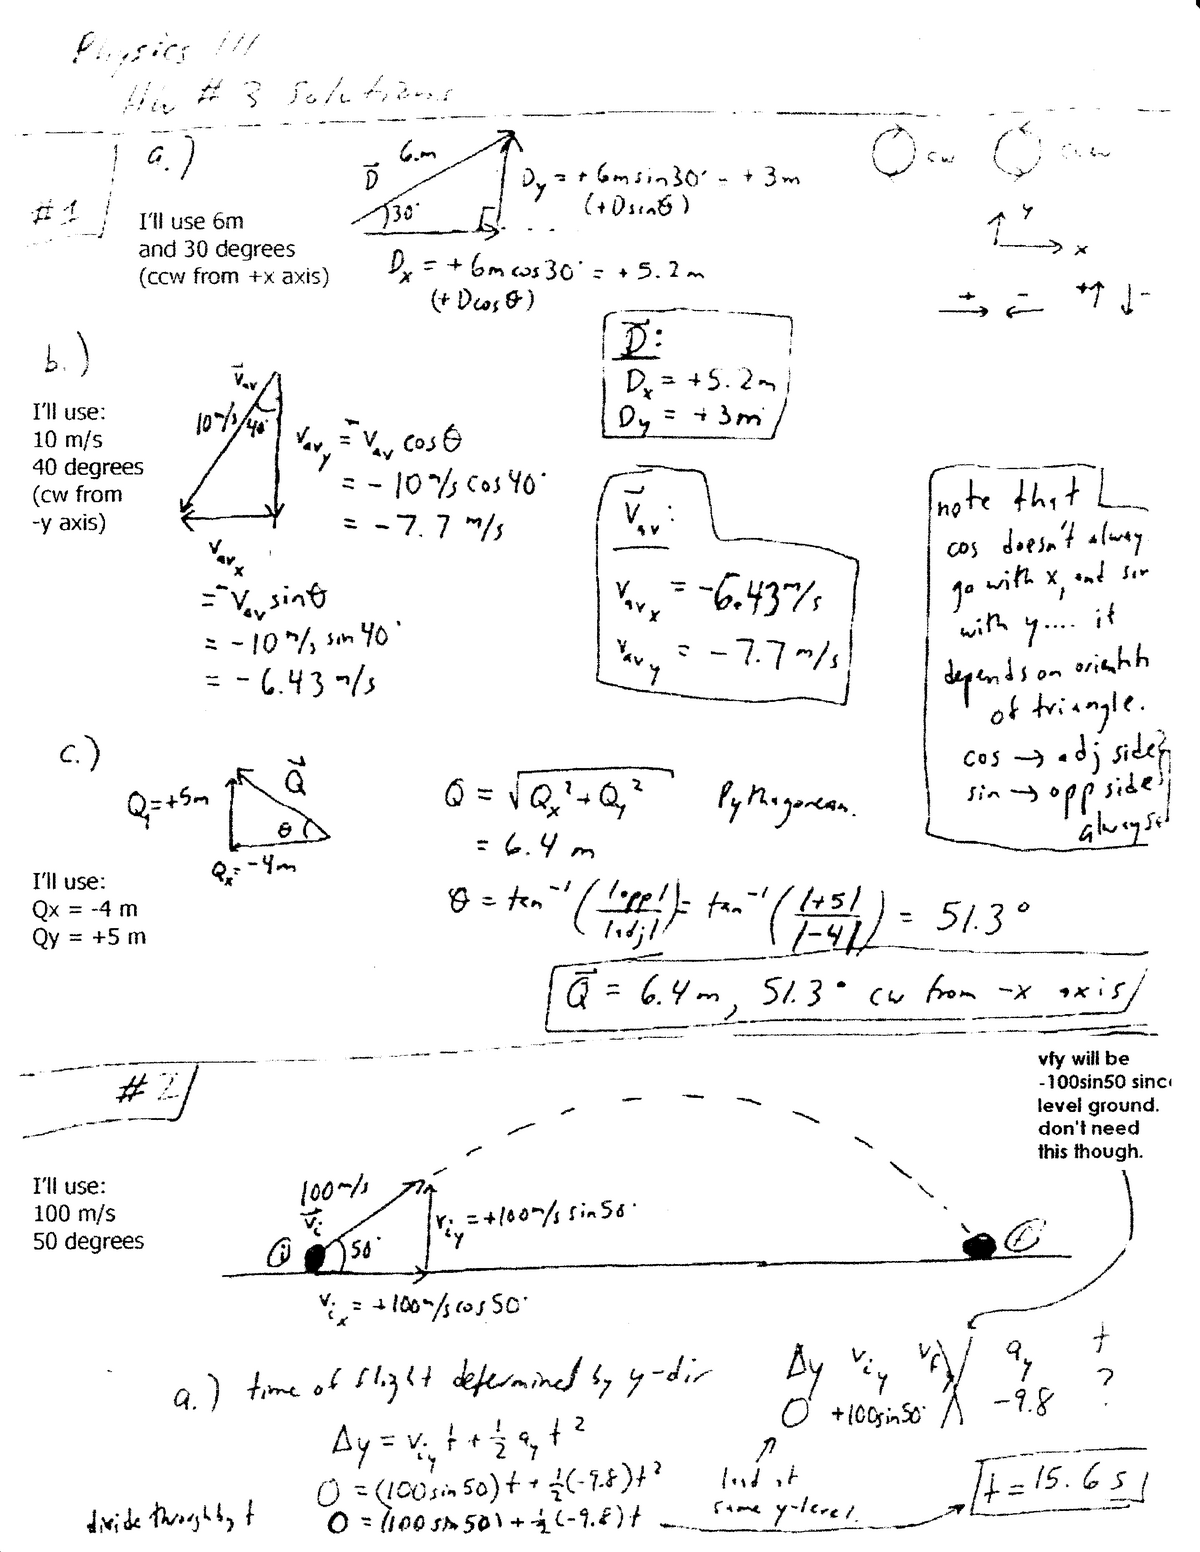 Physics 111
HW # 3 Solutions
#1
a.)
I'll use 6m
and 30 degrees
(ccw from +x axis)
D⃗ 6m
30°
Dy = +6m sin30° = +3m
(+Dsinθ)
Dx = +6m cos30° = +5.2m
(+Dcosθ)
cw ccw
y
x
+ - + -
D⃗:
Dx = +5.2m
Dy = +3m
b.)
I'll use:
10 m/s
40 degrees
(cw from
-y axis)
V⃗av
10 m/s 40°
Vavy = -Vav cosθ
= -10 m/s cos40°
= -7.7 m/s
Vavx
= -Vav sinθ
= -10 m/s sin40°
= -6.43 m/s
V⃗av:
Vavx = -6.43 m/s
Vavy = -7.7 m/s
note that
cos doesn't alway
go with x, and sin
with y.... it
depends on orientati
of triangle.
cos → adj side
sin → opp side
always
c.)
Qy=+5m
Q⃗
θ
Qx=-4m
I'll use:
Qx = -4 m
Qy = +5 m
Q = √(Qx² + Qy²) Pythagorean.
= 6.4 m
θ = tan⁻¹(|opp|/|adj|) = tan⁻¹(|+5|/|-4|) = 51.3°
Q⃗ = 6.4m, 51.3° cw from -x axis
#2
vfy will be
-100sin50 since
level ground.
don't need
this though.
I'll use:
100 m/s
50 degrees
100 m/s
v⃗i
i
50°
viy = +100 m/s sin50°
vix = +100 m/s cos50°
f
a.) time of flight determined by y-dir
Δy viy vfy ay t
0 +100sin50° -9.8 ?
Δy = viy t + ½ ay t²
0 = (100sin50)t + ½(-9.8)t²
divide through by t
0 = (100sin50) + ½(-9.8)t
land at
same y-level.
t = 15.6 s